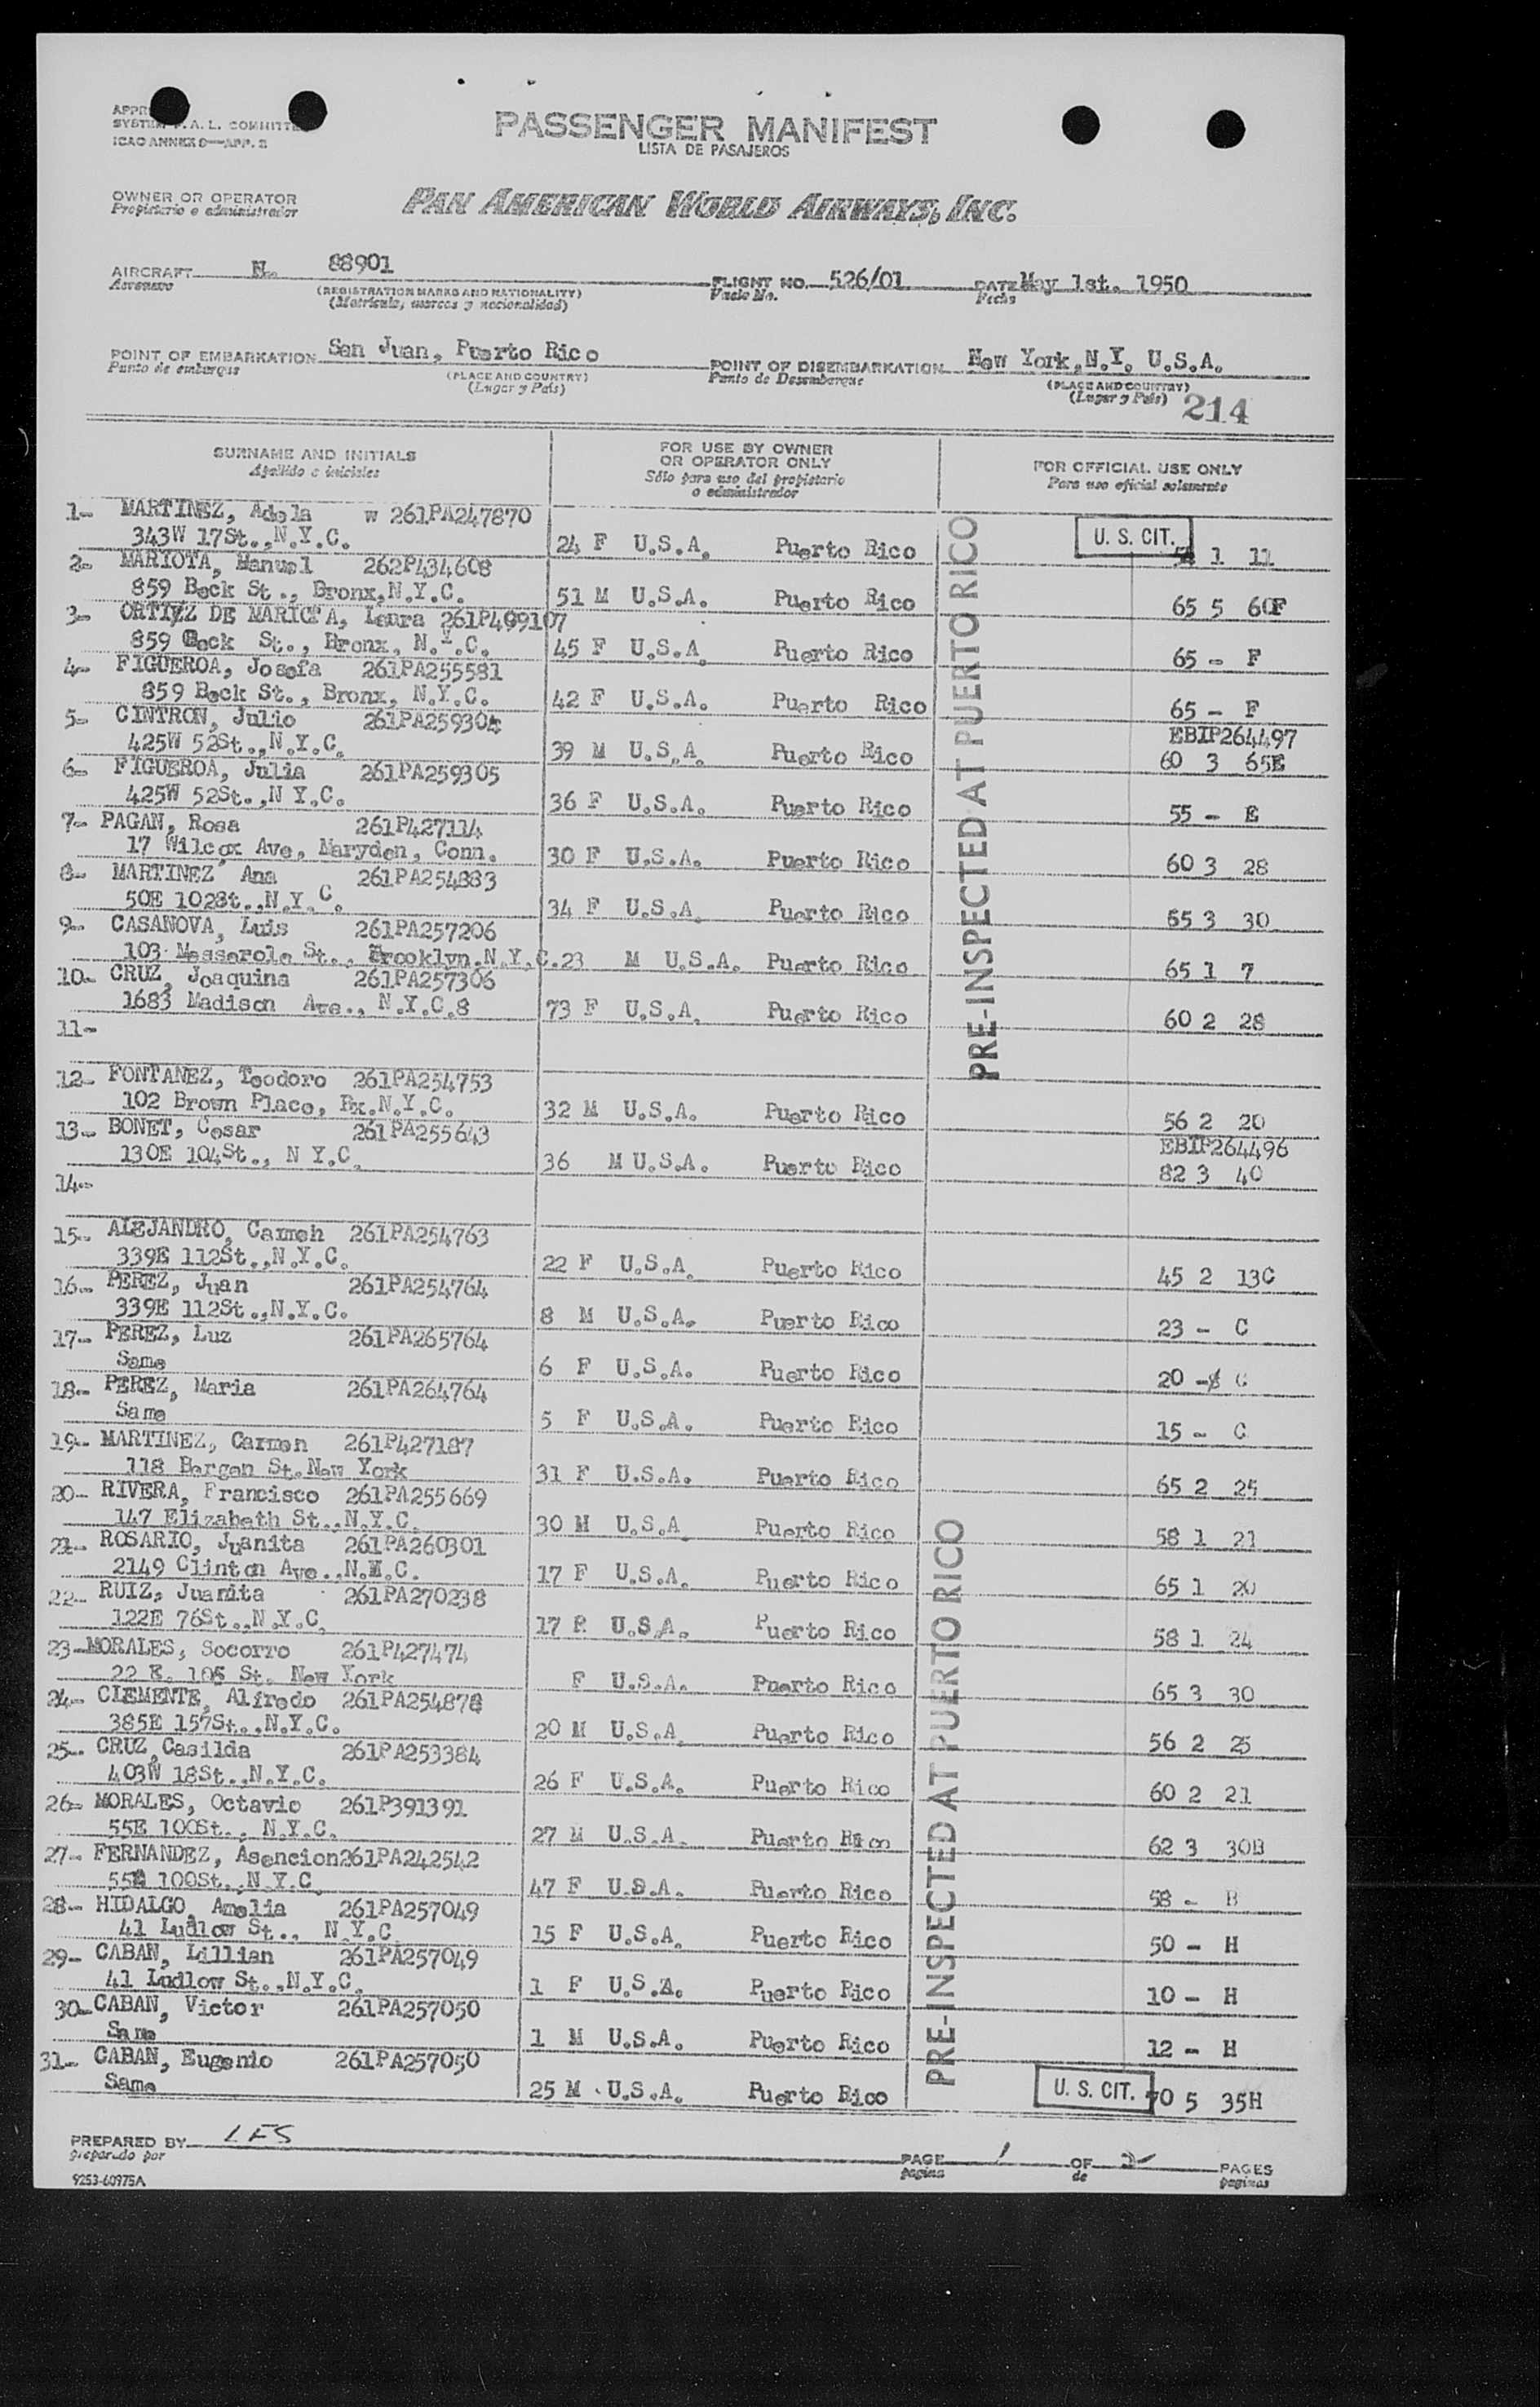 SYSTEM F.A.L. COMMITTE
ICAO ANNEX 9—APP. 2
PASSENGER MANIFEST
LISTA DE PASAJEROS
OWNER OR OPERATOR
Propietario o administrador
PAN AMERICAN WORLD AIRWAYS, INC.
AIRCRAFT N. 88901 FLIGHT NO. 526/01 DATE May 1st. 1950
Aeronave (REGISTRATION MARKS AND NATIONALITY) Vuelo No. Fecha
(Matrícula, marcas y nacionalidad)
POINT OF EMBARKATION San Juan, Puerto Rico POINT OF DISEMBARKATION New York,N.Y. U.S.A.
Punto de embarque (PLACE AND COUNTRY) Punto de Desembarque (PLACE AND COUNTRY)
(Lugar y País) (Lugar y País) 214
SURNAME AND INITIALS FOR USE BY OWNER OR OPERATOR ONLY FOR OFFICIAL USE ONLY
Apellido e iniciales Sólo para uso del propietario o administrador Para uso oficial solamente
1- MARTINEZ, Adela w 261PA247870 U. S. CIT.
343W 17St.,N.Y.C. 24 F U.S.A. Puerto Rico 1 11
2- MARIOTA, Manuel 262P434608
859 Beck St., Bronx,N.Y.C. 51 M U.S.A. Puerto Rico 65 5 60F
3- ORTIEZ DE MARIOTA, Laura 261P499107
859 Beck St., Bronx, N.Y.C. 45 F U.S.A. Puerto Rico 65 - F
4- FIGUEROA, Josefa 261PA255581
859 Beck St., Bronx, N.Y.C. 42 F U.S.A. Puerto Rico 65 - F
5- CINTRON, Julio 261PA259304 EBIP264497
425W 52St.,N.Y.C. 39 M U.S.A. Puerto Rico 60 3 65E
6- FIGUEROA, Julia 261PA259305
425W 52St.,N Y.C. 36 F U.S.A. Puerto Rico 55 - E
7- PAGAN, Rosa 261P427114
17 Wilcox Ave, Maryden, Conn. 30 F U.S.A. Puerto Rico 60 3 28
8- MARTINEZ Ana 261PA254883
50E 102St.,N.Y.C. 34 F U.S.A. Puerto Rico 55 3 30
9- CASANOVA, Luis 261PA257206
103 Messerole St., Brooklyn.N.Y.C.23 M U.S.A. Puerto Rico 65 1 7
10- CRUZ, Joaquina 261PA257306
1683 Madison Ave., N.Y.C.8 73 F U.S.A. Puerto Rico 60 2 28
11-
PRE-INSPECTED AT PUERTO RICO
12- FONTANEZ, Teodoro 261PA254753
102 Brown Place, Bx.N.Y.C. 32 M U.S.A. Puerto Rico 56 2 20
13- BONET, Cesar 261PA255643 EBIP264496
130E 104St., N Y.C. 36 M U.S.A. Puerto Rico 82 3 40
14-
15- ALEJANDRO, Carmeh 261PA254763
339E 112St.,N.Y.C. 22 F U.S.A. Puerto Rico 45 2 13C
16- PEREZ, Juan 261PA254764
339E 112St.,N.Y.C. 8 M U.S.A. Puerto Rico 23 - C
17- PEREZ, Luz 261PA265764
Same 6 F U.S.A. Puerto Rico 20 - C
18- PEREZ, Maria 261PA264764
Same 5 F U.S.A. Puerto Rico 15 - C
19- MARTINEZ, Carmen 261P427187
118 Bergen St.New York 31 F U.S.A. Puerto Rico 65 2 25
20- RIVERA, Francisco 261PA255669
147 Elizabeth St.,N.Y.C. 30 M U.S.A. Puerto Rico 58 1 21
21- ROSARIO, Juanita 261PA260301
2149 Clinton Ave.,N.Y.C. 17 F U.S.A. Puerto Rico 65 1 20
22- RUIZ, Juanita 261PA270238
122E 76St.,N.Y.C. 17 F U.S.A. Puerto Rico 58 1 24
23-MORALES, Socorro 261P427474
22 E. 105 St. New York F U.S.A. Puerto Rico 65 3 30
24- CLEMENTE, Alfredo 261PA254878
385E 157St.,N.Y.C. 20 M U.S.A. Puerto Rico 56 2 25
25- CRUZ,Casilda 261PA253384
403W 18St.,N.Y.C. 26 F U.S.A. Puerto Rico 60 2 21
26- MORALES, Octavio 261P391391
55E 100St., N.Y.C. 27 M U.S.A. Puerto Rico 62 3 30B
27- FERNANDEZ, Asencion261PA242542
55E 100St.,N.Y.C. 47 F U.S.A. Puerto Rico 58 - B
28- HIDALGO, Amelia 261PA257049
41 Ludlow St., N.Y.C 15 F U.S.A. Puerto Rico 50 - H
29- CABAN, Lillian 261PA257049
41 Ludlow St.,N.Y.C. 1 F U.S.A. Puerto Rico 10 - H
30-CABAN, Victor 261PA257050
Same 1 M U.S.A. Puerto Rico 12 - H
31- CABAN, Eugenio 261PA257050
Same 25 M U.S.A. Puerto Rico U. S. CIT. 70 5 35H
PRE-INSPECTED AT PUERTO RICO
PREPARED BY LES PAGE 1 OF 2 PAGES
preparado por pagina de paginas
9253-60975A